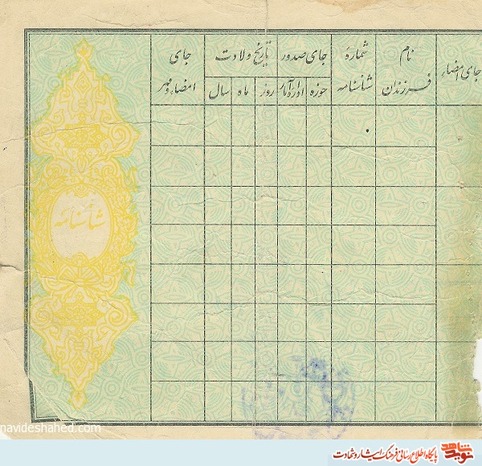 جای امضاء
نام
فرزندان
شمارهٔ
شناسنامه
جای صدور
حوزه
اداره آمار
تاریخ ولادت
روز
ماه
سال
جای
امضاء و مهر
شناسنامه
navideshahed.com
نوید شاهد
پایگاه اطلاع رسانی فرهنگ ایثار و شهادت